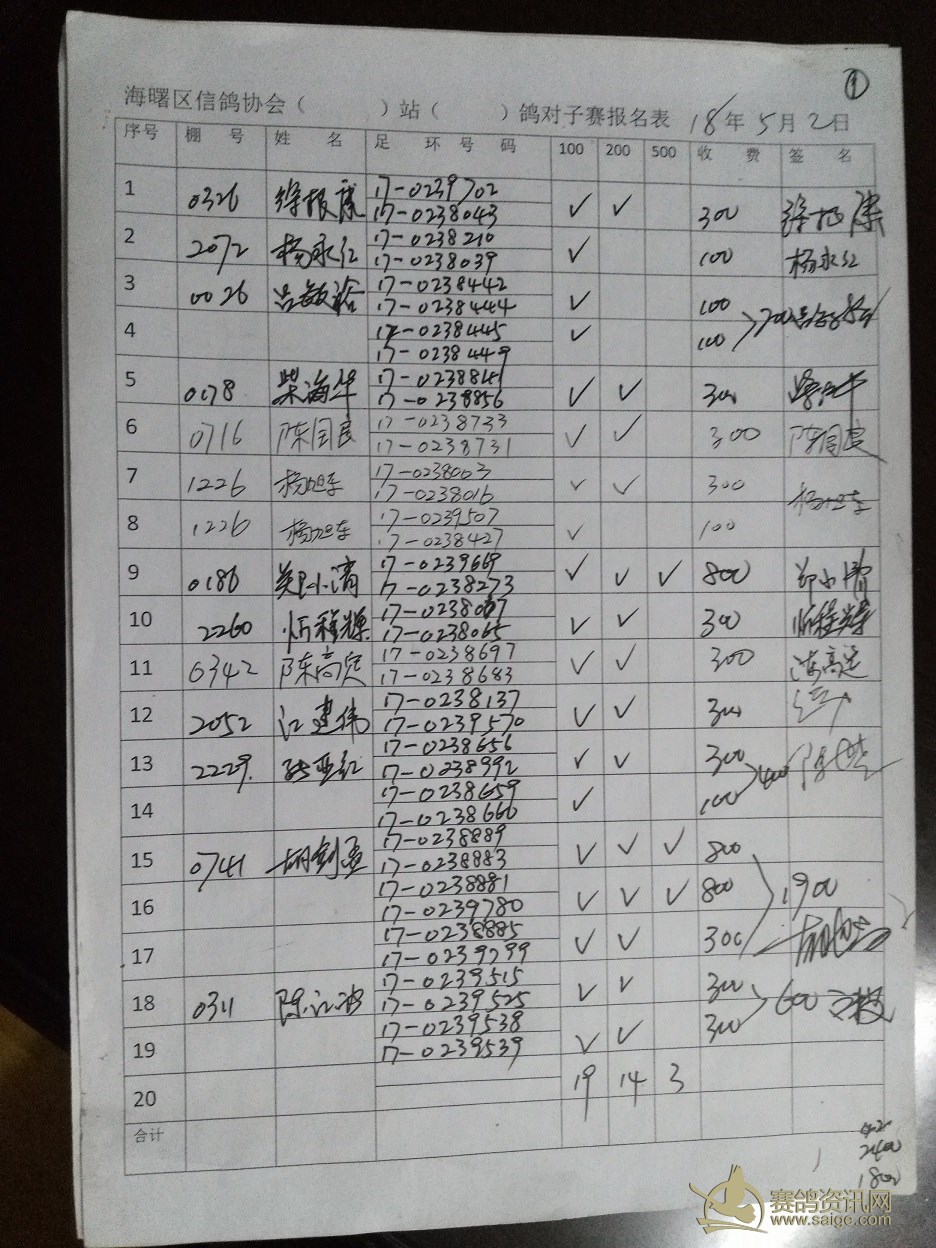 ①
海曙区信鸽协会（ ）站（ ）鸽对子赛报名表 18年5月2日
序号 棚号 姓名 足环号码 100 200 500 收费 签名
1 0326 徐振康 17-0239702 ✓ ✓ 300 徐振康
17-0238043
2 2072 杨永红 17-0238210 ✓ 100 杨永红
17-0238039
3 0026 吕敏裕 17-0238442 ✓ 100
17-0238444
4 17-0238445 ✓ 100 200
17-0238449
5 0178 柴海华 17-0238841 ✓ ✓ 300
17-0238856
6 0716 陈国良 17-0238733 ✓ ✓ 300 陈国良
17-0238731
7 1226 杨旭东 17-0238003 ✓ ✓ 300 杨旭东
17-0238016
8 1226 杨旭东 17-0239507 ✓ 100
17-0238427
9 0186 郑小清 17-0239669 ✓ ✓ ✓ 800 郑小清
17-0238273
10 2260 忻程辉 17-0238067 ✓ ✓ 300 忻程辉
17-0238065
11 0342 陈高定 17-0238697 ✓ ✓ 300 陈高定
17-0238683
12 2052 江建伟 17-0238137 ✓ ✓ 300
17-0239570
13 2229 张亚红 17-0238656 ✓ ✓ 300
17-0238992
14 17-0238659 ✓ 100 400
17-0238660
15 0741 胡剑孟 17-0238889 ✓ ✓ ✓ 800
17-0238883
16 17-0238881 ✓ ✓ ✓ 800 1900
17-0239780
17 17-0238885 ✓ ✓ 300
17-0239299
18 0311 陈江波 17-0239515 ✓ ✓ 300 600 江波
17-0239525
19 17-0239538 ✓ ✓ 300
17-0239539
20 19 14 3
合计
2400
1800
赛鸽资讯网
www.saige.com